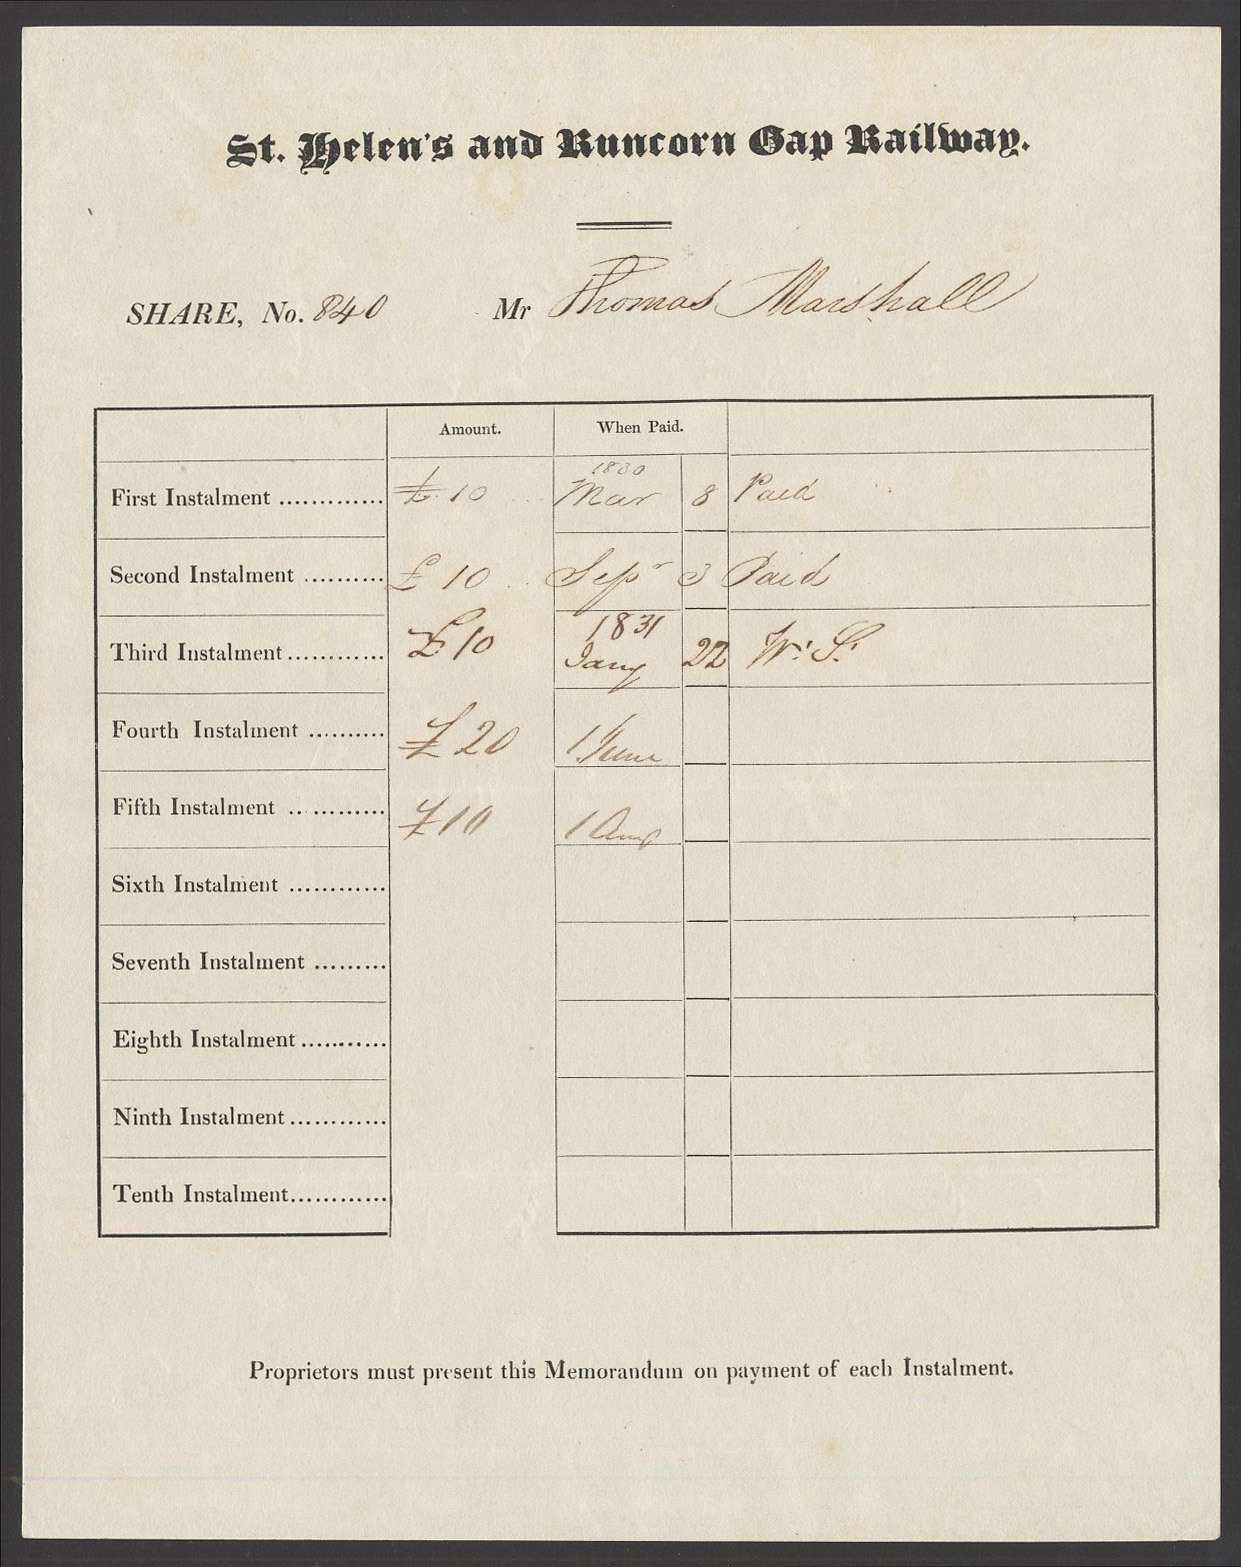 St. Helen's and Runcorn Gap Railway.
SHARE, No. 840 Mr Thomas Marshall
Amount. When Paid.
1830
First Instalment ............. £10 Mar 8 Paid
Second Instalment .......... £10 Sepr 3 Paid
1831
Third Instalment............ £10 Jany 22 W. S.
Fourth Instalment .......... £20 1 June
Fifth Instalment ............ £10 1 Aug
Sixth Instalment ............
Seventh Instalment .........
Eighth Instalment ...........
Ninth Instalment ............
Tenth Instalment............
Proprietors must present this Memorandum on payment of each Instalment.